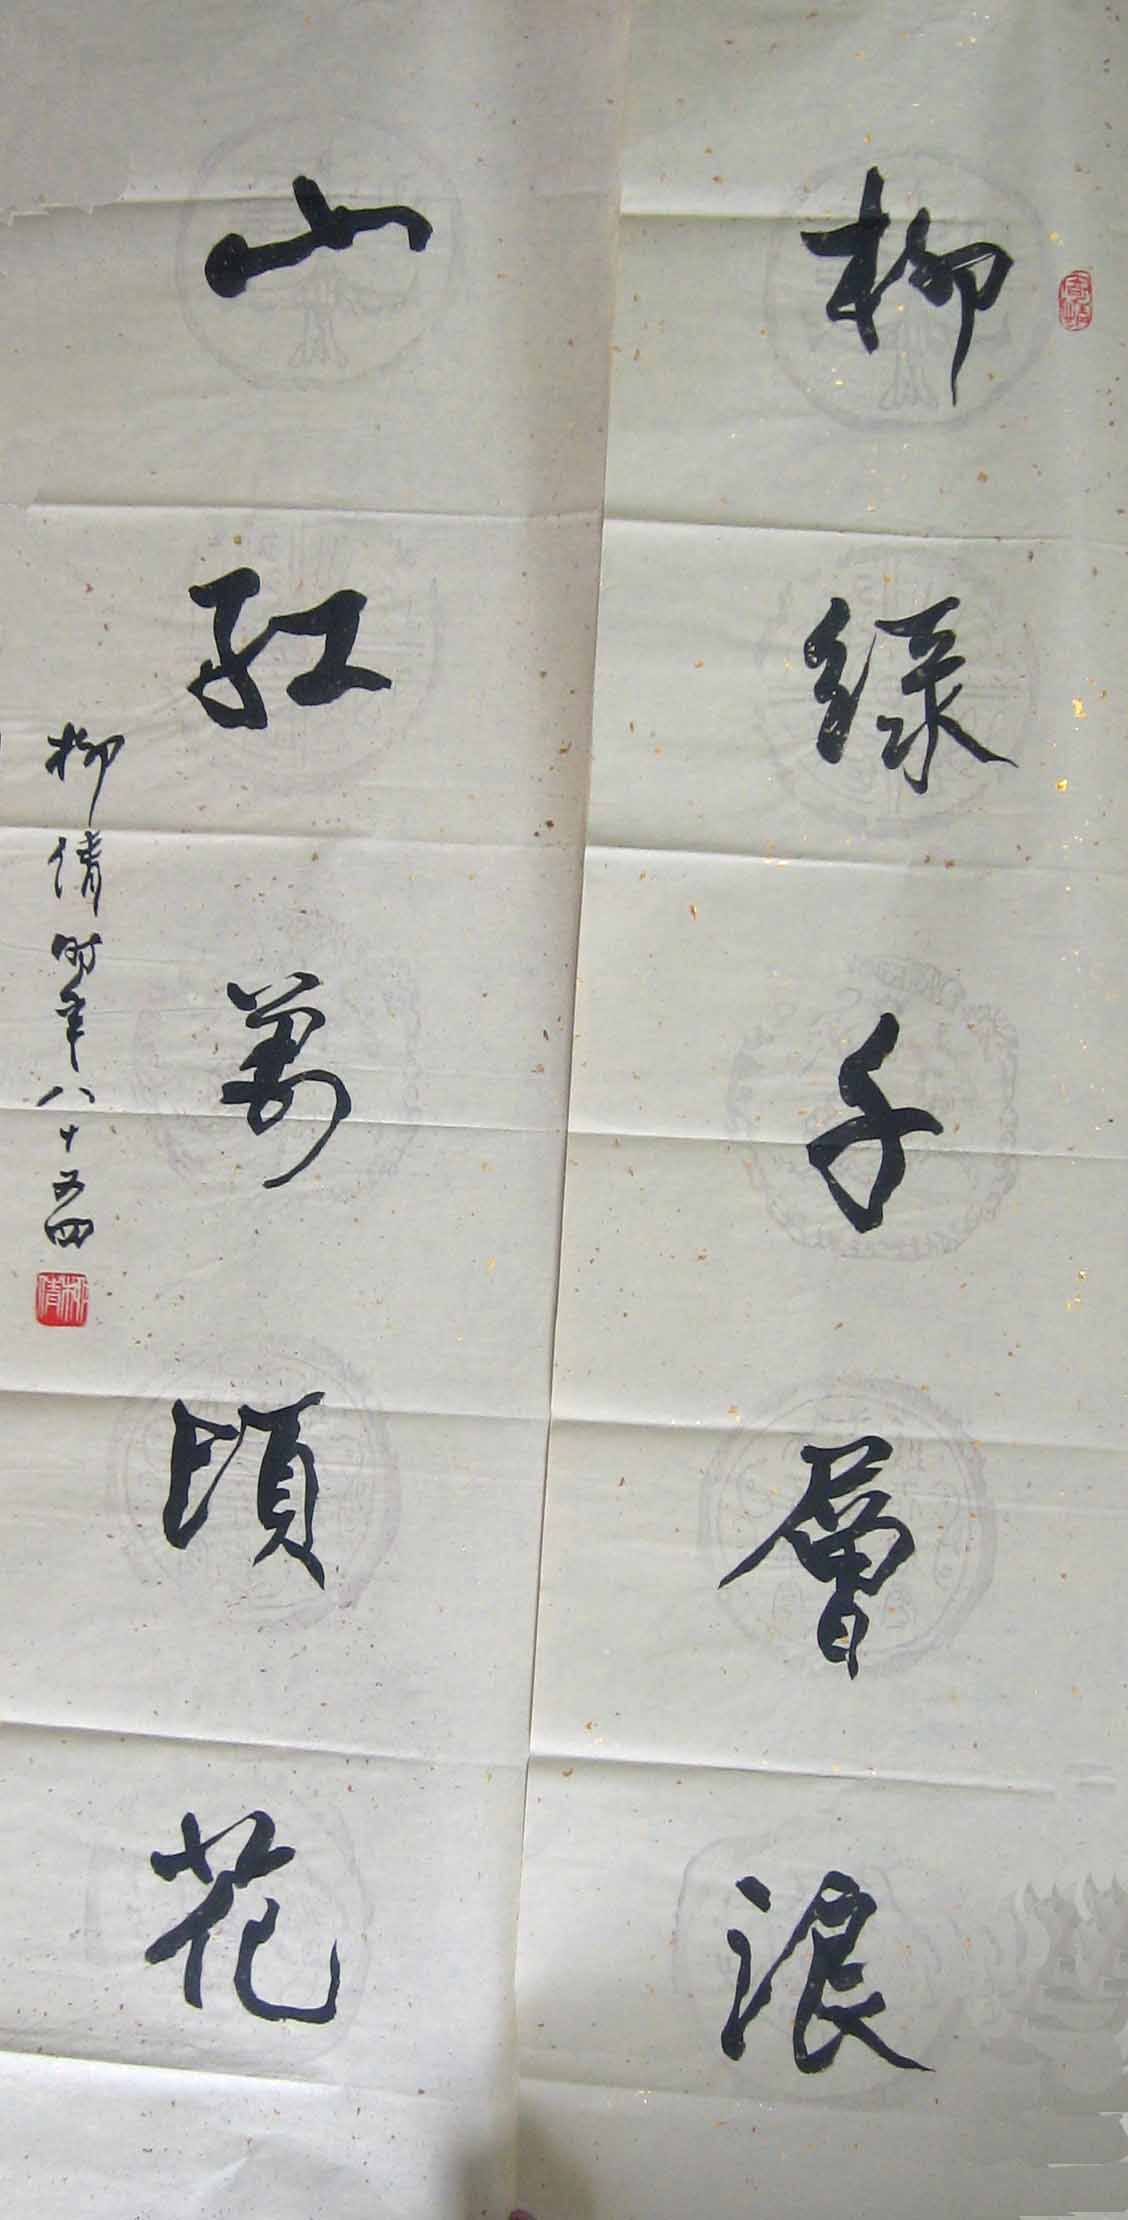 柳綠千層浪
山紅萬頃花
柳倩时年八十五
柳倩